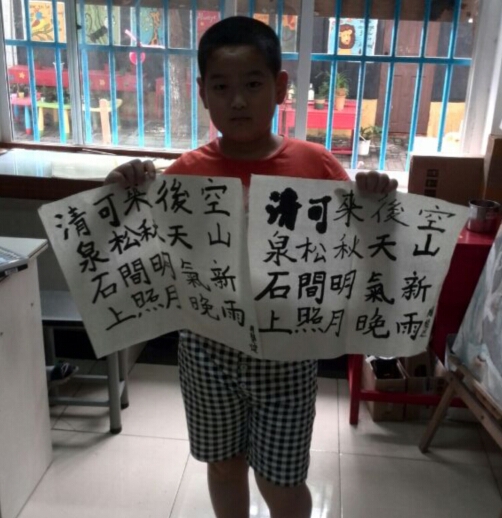 空山新雨
後天氣晚
来秋明月
可松間照
清泉石上
空山新雨
後天氣晚
来秋明月
可松間照
清泉石上